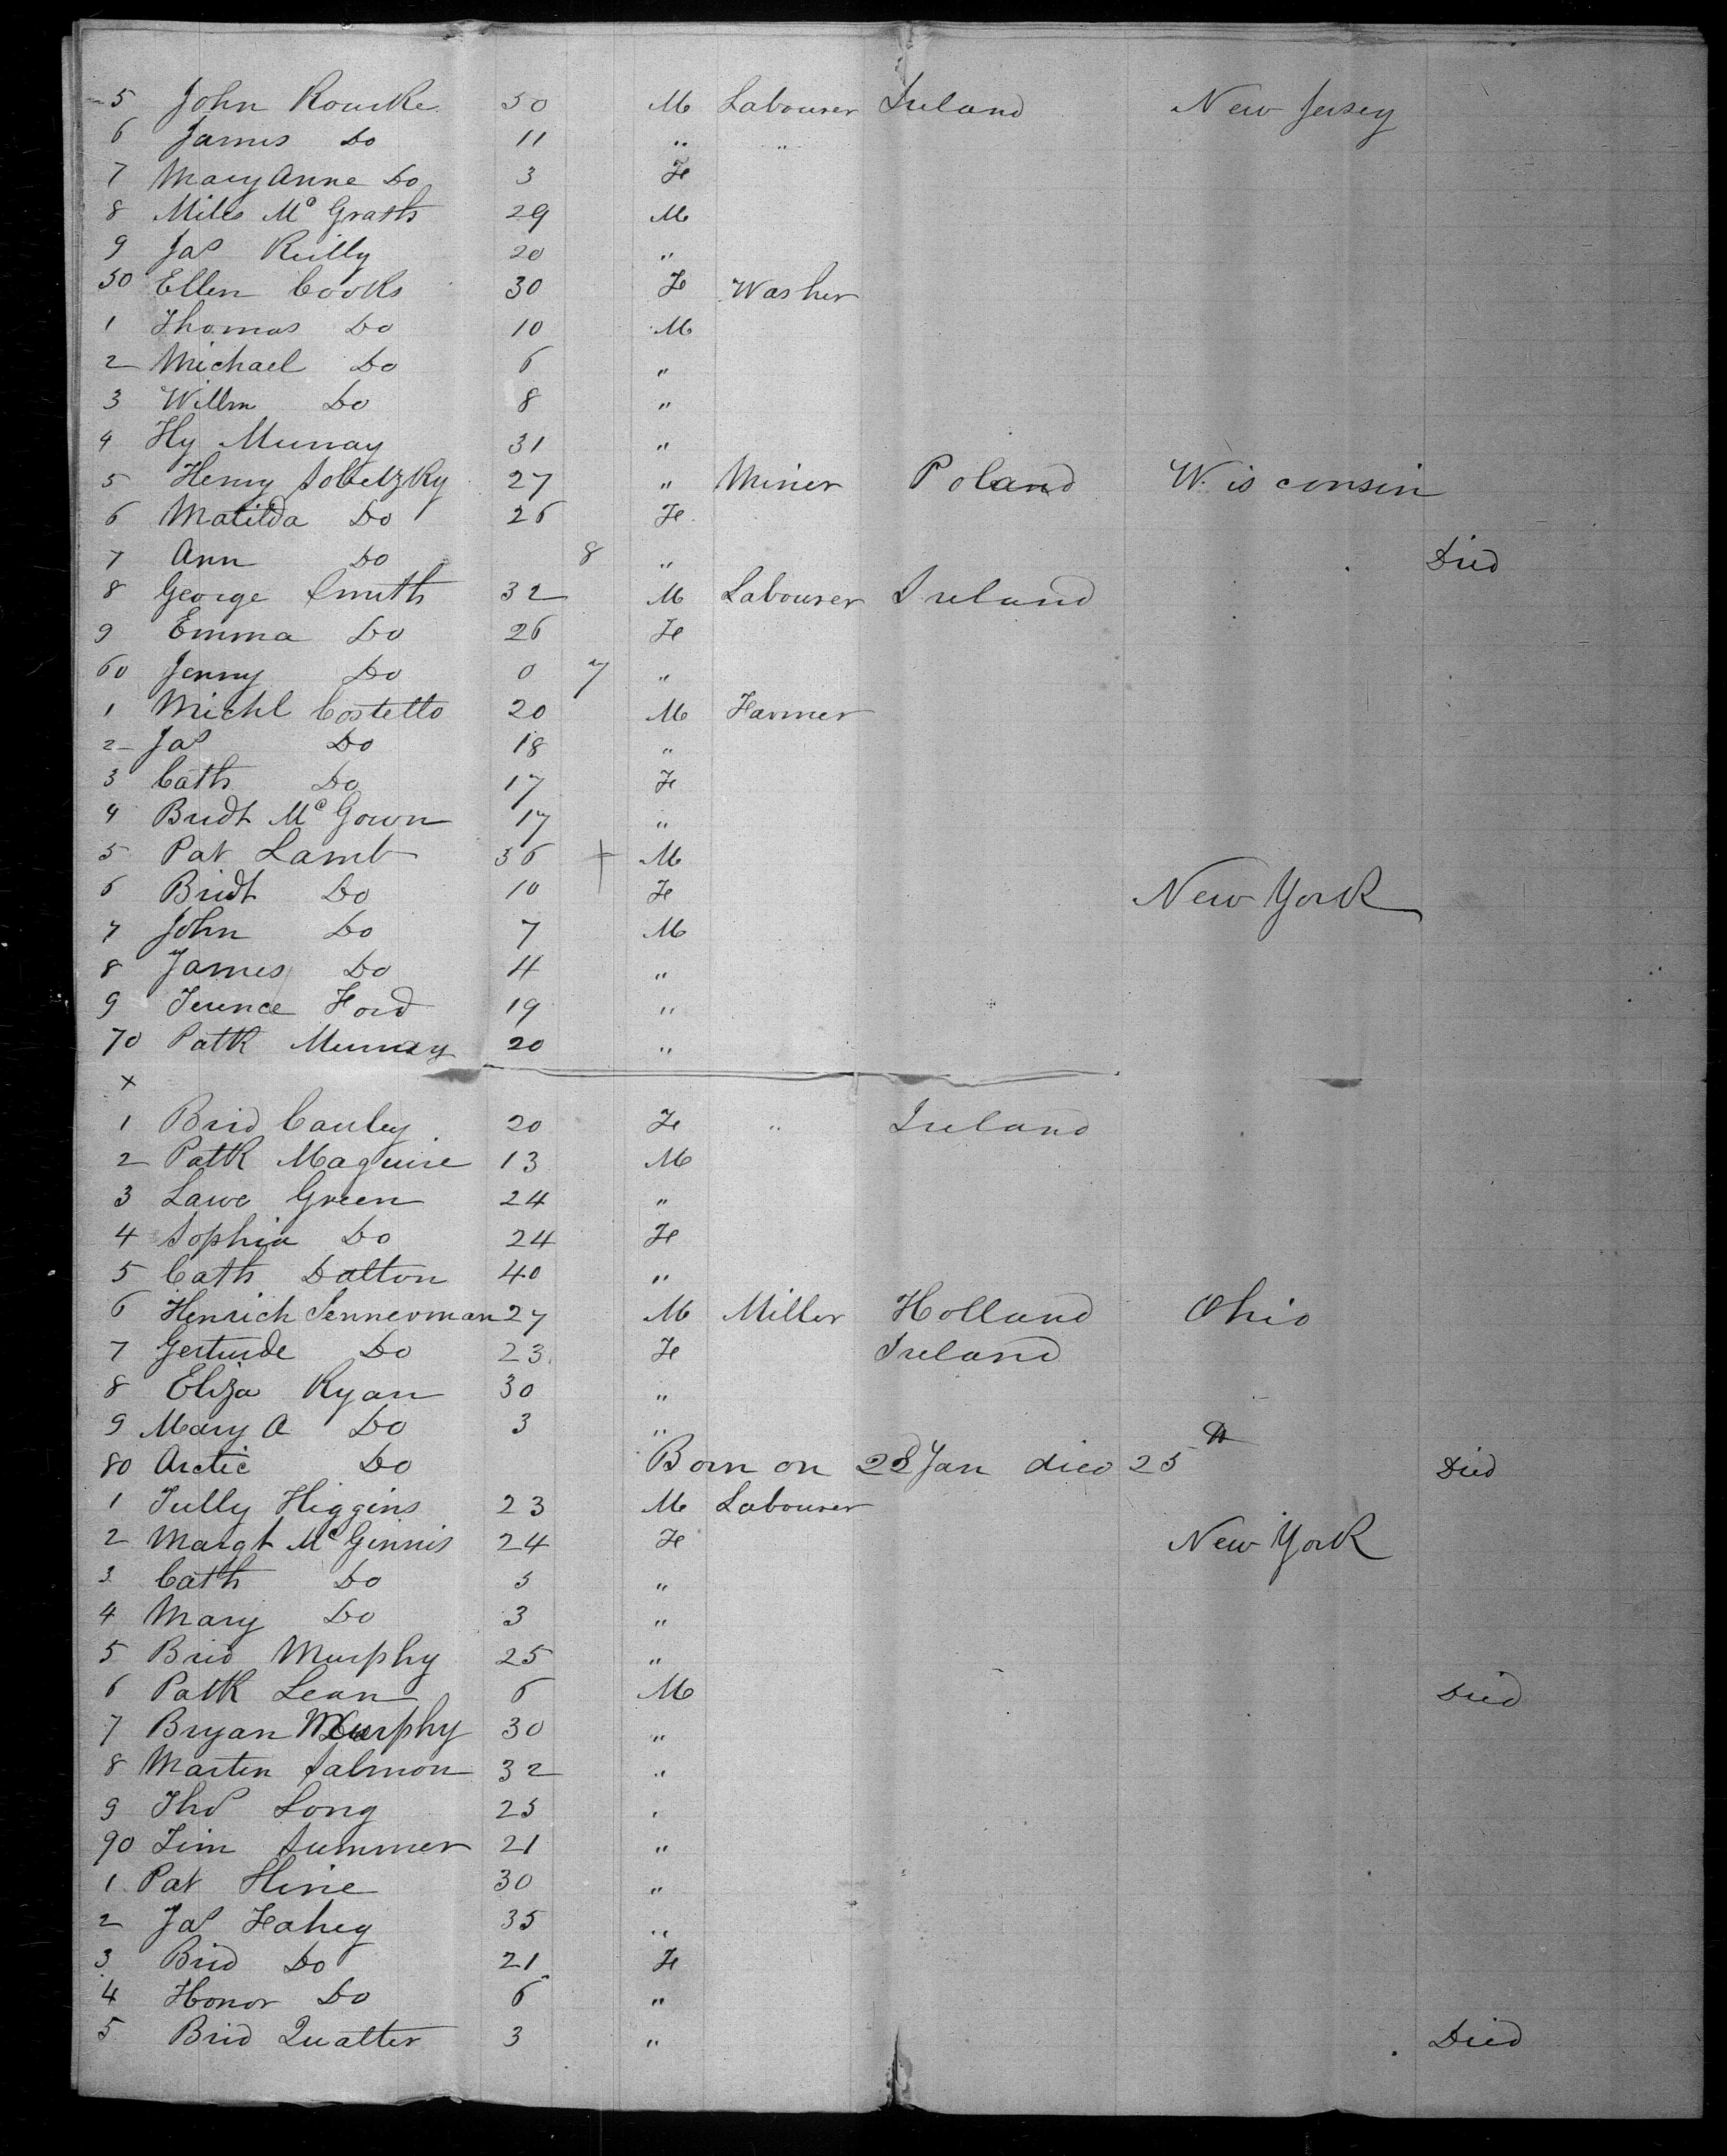 5 John Rourke 50 M Labourer Ireland New Jersey
6 James Do 11 " "
7 Mary Anne Do 3 Fe
8 Miles Mc Grath 29 M
9 Jas Reilly 20 "
50 Ellen Cooks 30 Fe Washer
1 Thomas Do 10 M
2 Michael Do 6 "
3 Willm Do 8 "
4 Hy Murray 31 "
5 Henry Sobetzky 27 " Miner Poland Wisconsin
6 Matilda Do 26 Fe
7 Ann Do 8 " Died
8 George Smith 32 M Labourer Ireland
9 Emma Do 26 Fe
60 Jenny Do 0 7 "
1 Michl Costello 20 M Farmer
2 Jas Do 18 "
3 Cath Do 17 Fe
4 Bridt Mc Gown 17 "
5 Pat Lamb 36 + M
6 Bridt Do 10 Fe New York
7 John Do 7 M
8 James Do 4 "
9 Terence Ford 19 "
70 Patk Murray 20 "
x
1 Brid Cauley 20 Fe " Ireland
2 Patk Maguire 13 M
3 Lawe Green 24 "
4 Sophia Do 24 Fe
5 Cath Dalton 40 "
6 Henrich Tennerman 27 M Miller Holland Ohio
7 Gertrude Do 23 Fe Ireland
8 Eliza Ryan 30 "
9 Mary A Do 3 "
80 Arctic Do Born on 22 Jan died 25th Died
1 Tully Higgins 23 M Labourer
2 Margt Mc Ginnis 24 Fe New York
3 Cath Do 5 "
4 Mary Do 3 "
5 Brid Murphy 25 "
6 Patk Lean 6 M Died
7 Bryan Murphy 30 "
8 Marten Salmon 32 "
9 Thos Long 25 "
90 Tim Summer 21 "
1 Pat Hine 30 "
2 Jas Fahey 35 "
3 Brid Do 21 Fe
4 Honor Do 6 "
5 Brid Qualter 3 " Died